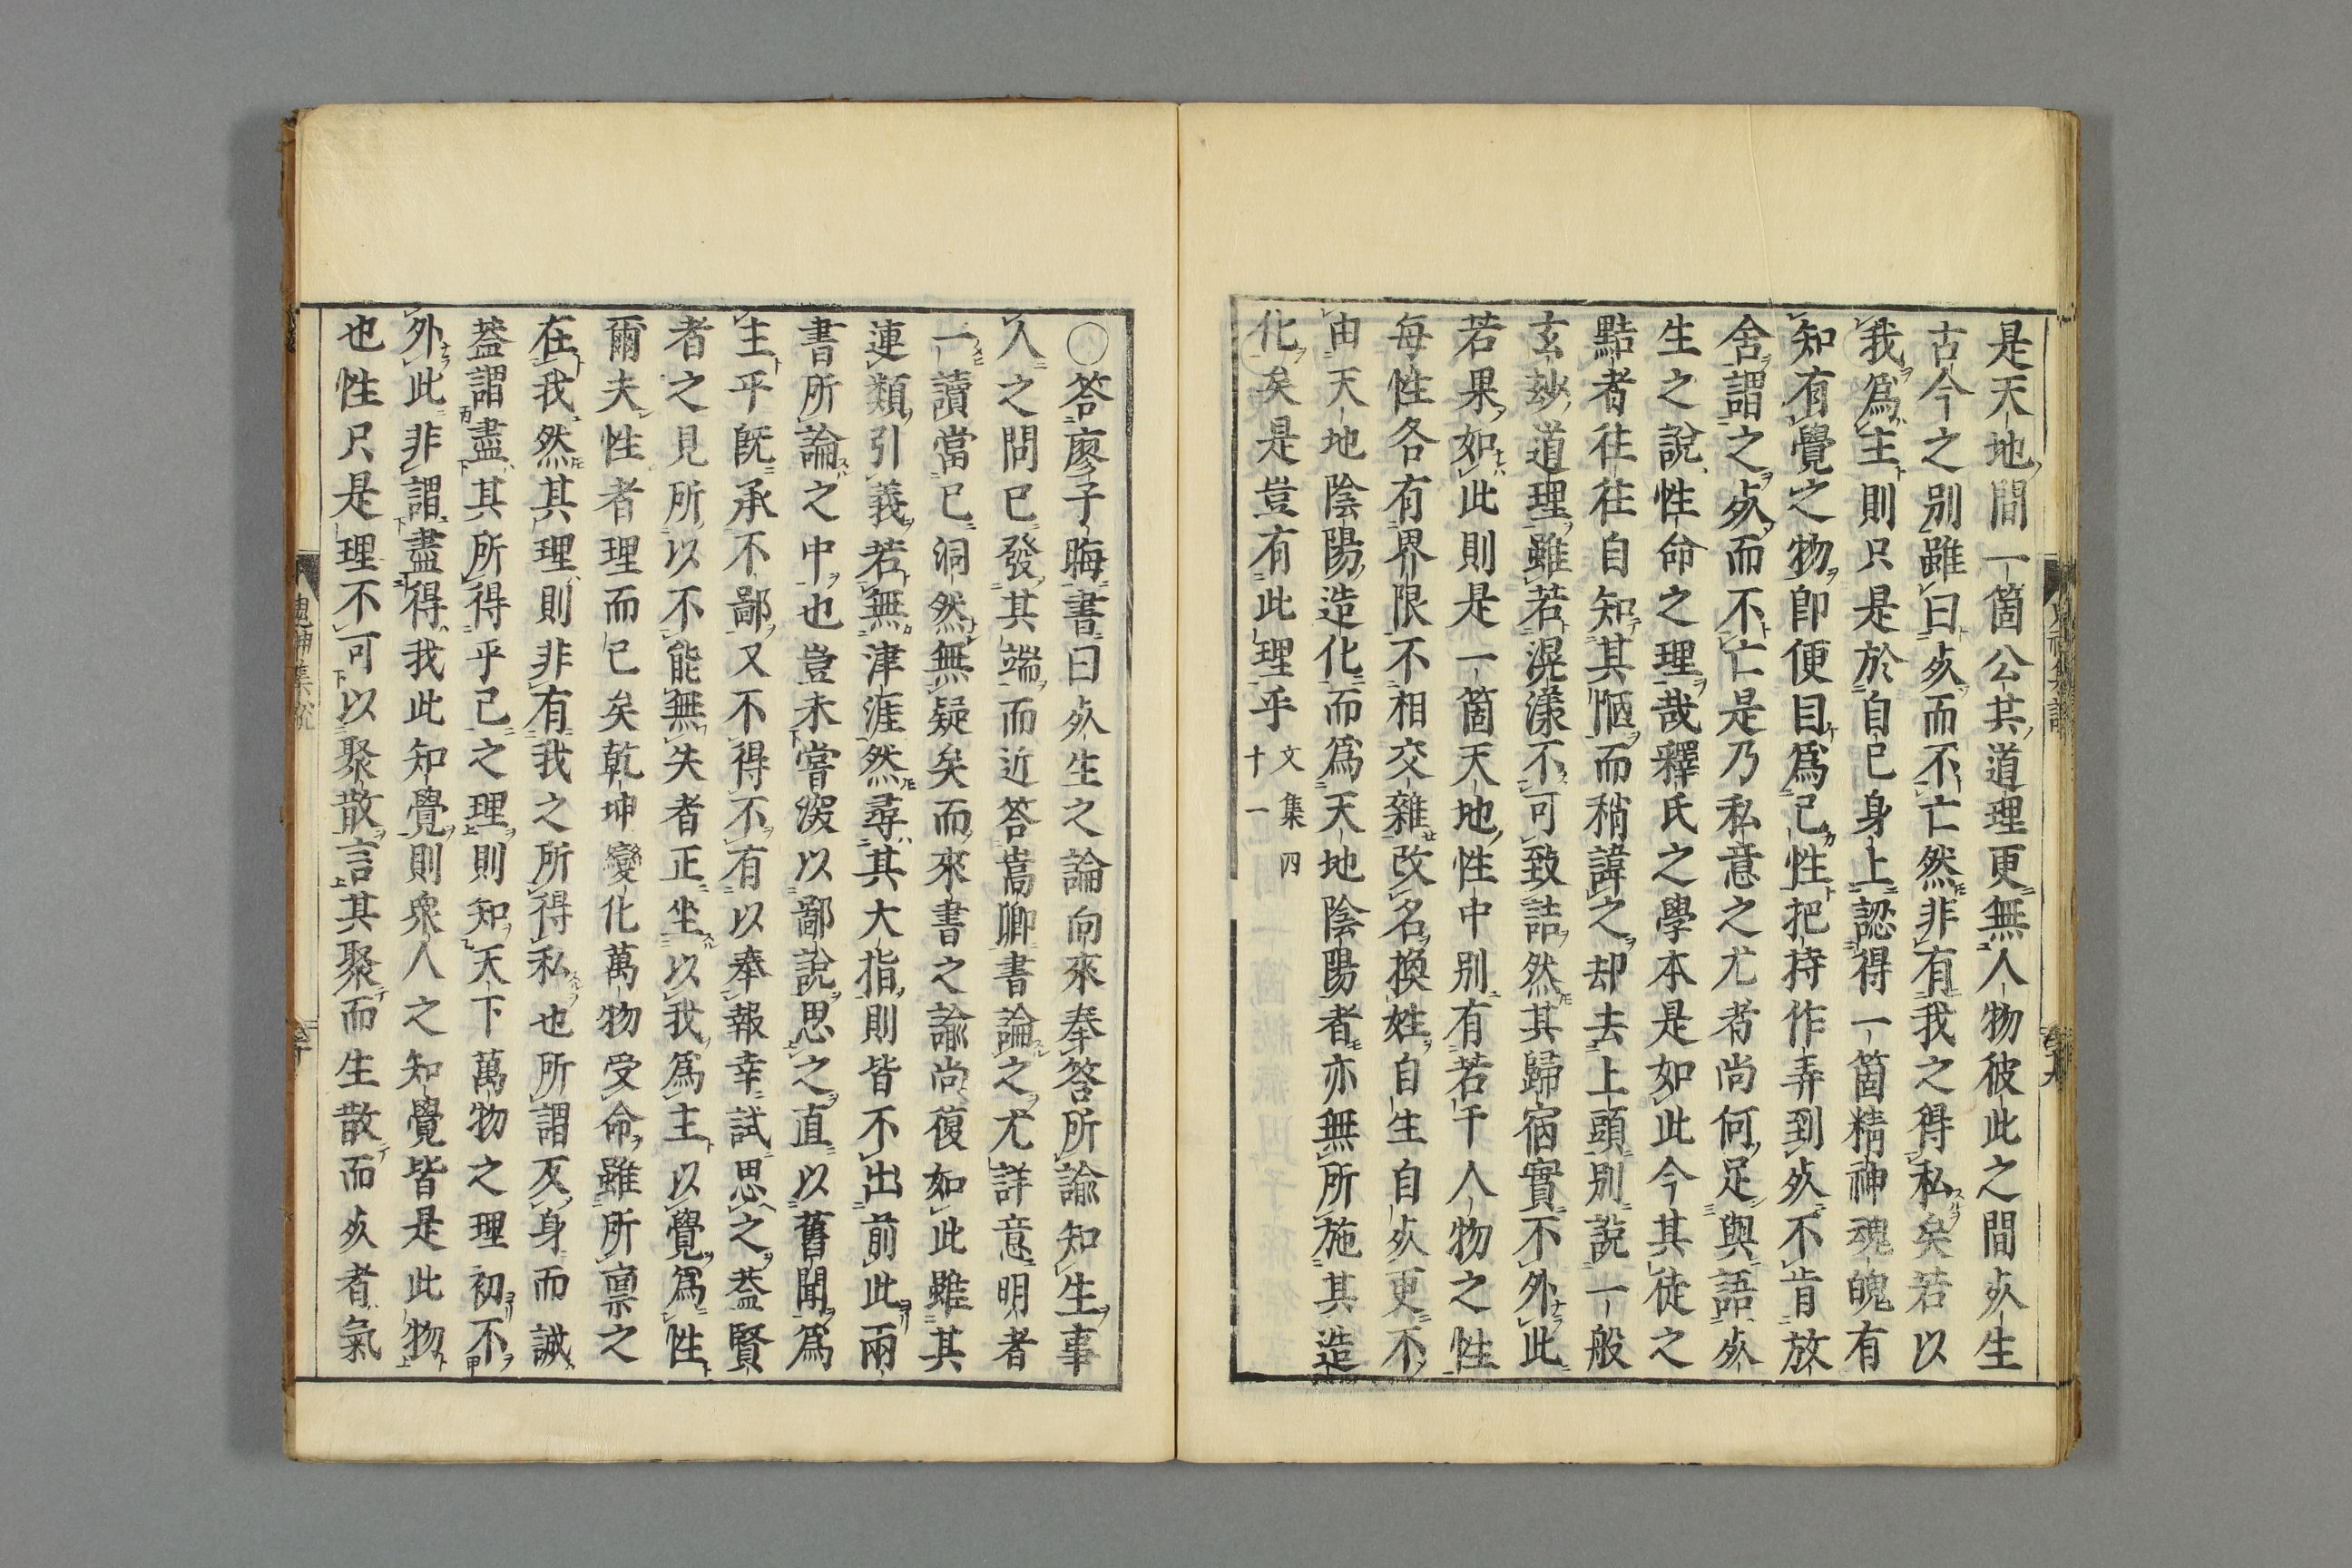 是天地間一箇公共道理更無人物彼此之間死生
古今之別雖曰死而不亡然非有我之得私矣若以
我爲主則只是於自己身上認得一箇精神魂魄有
知有覺之物即便目爲己性把持作弄到死不肯放
舍謂之死而不亡是乃私意之尤者尚何足與語死
生之說性命之理哉釋氏之學本是如此今其徒之
黠者往往自知其陋而稍諱之却去上頭別說一般
玄玅道理雖若滉漾不可致詰然其歸宿實不外此
若果如此則是一箇天地性中別有若干人物之性
每性各有界限不相交雜改名換姓自生自死更不
由天地陰陽造化而爲天地陰陽者亦無所施其造
化矣是豈有此理乎 文集四十一
○答廖子晦書曰死生之論向來奉答所諭知生事
人之問已發其端而近答嵩卿書論之尤詳意明者
一讀當已洞然無疑矣而來書之諭尚復如此雖其
連類引義若無津涯然尋其大指則皆不出前此兩
書所論之中也豈未嘗深以鄙說思之直以舊聞爲
主乎既承不鄙又不得不有以奉報幸試思之蓋賢
者之見所以不能無失者正坐以我爲主以覺爲性
爾夫性者理而已矣乾坤變化萬物受命雖所稟之
在我然其理則非有我之所得私也所謂反身而誠
蓋謂盡其所得乎己之理則知天下萬物之理初不
外此非謂盡得我此知覺則衆人之知覺皆是此物
也性只是理不可以聚散言其聚而生散而死者氣
鬼神集説